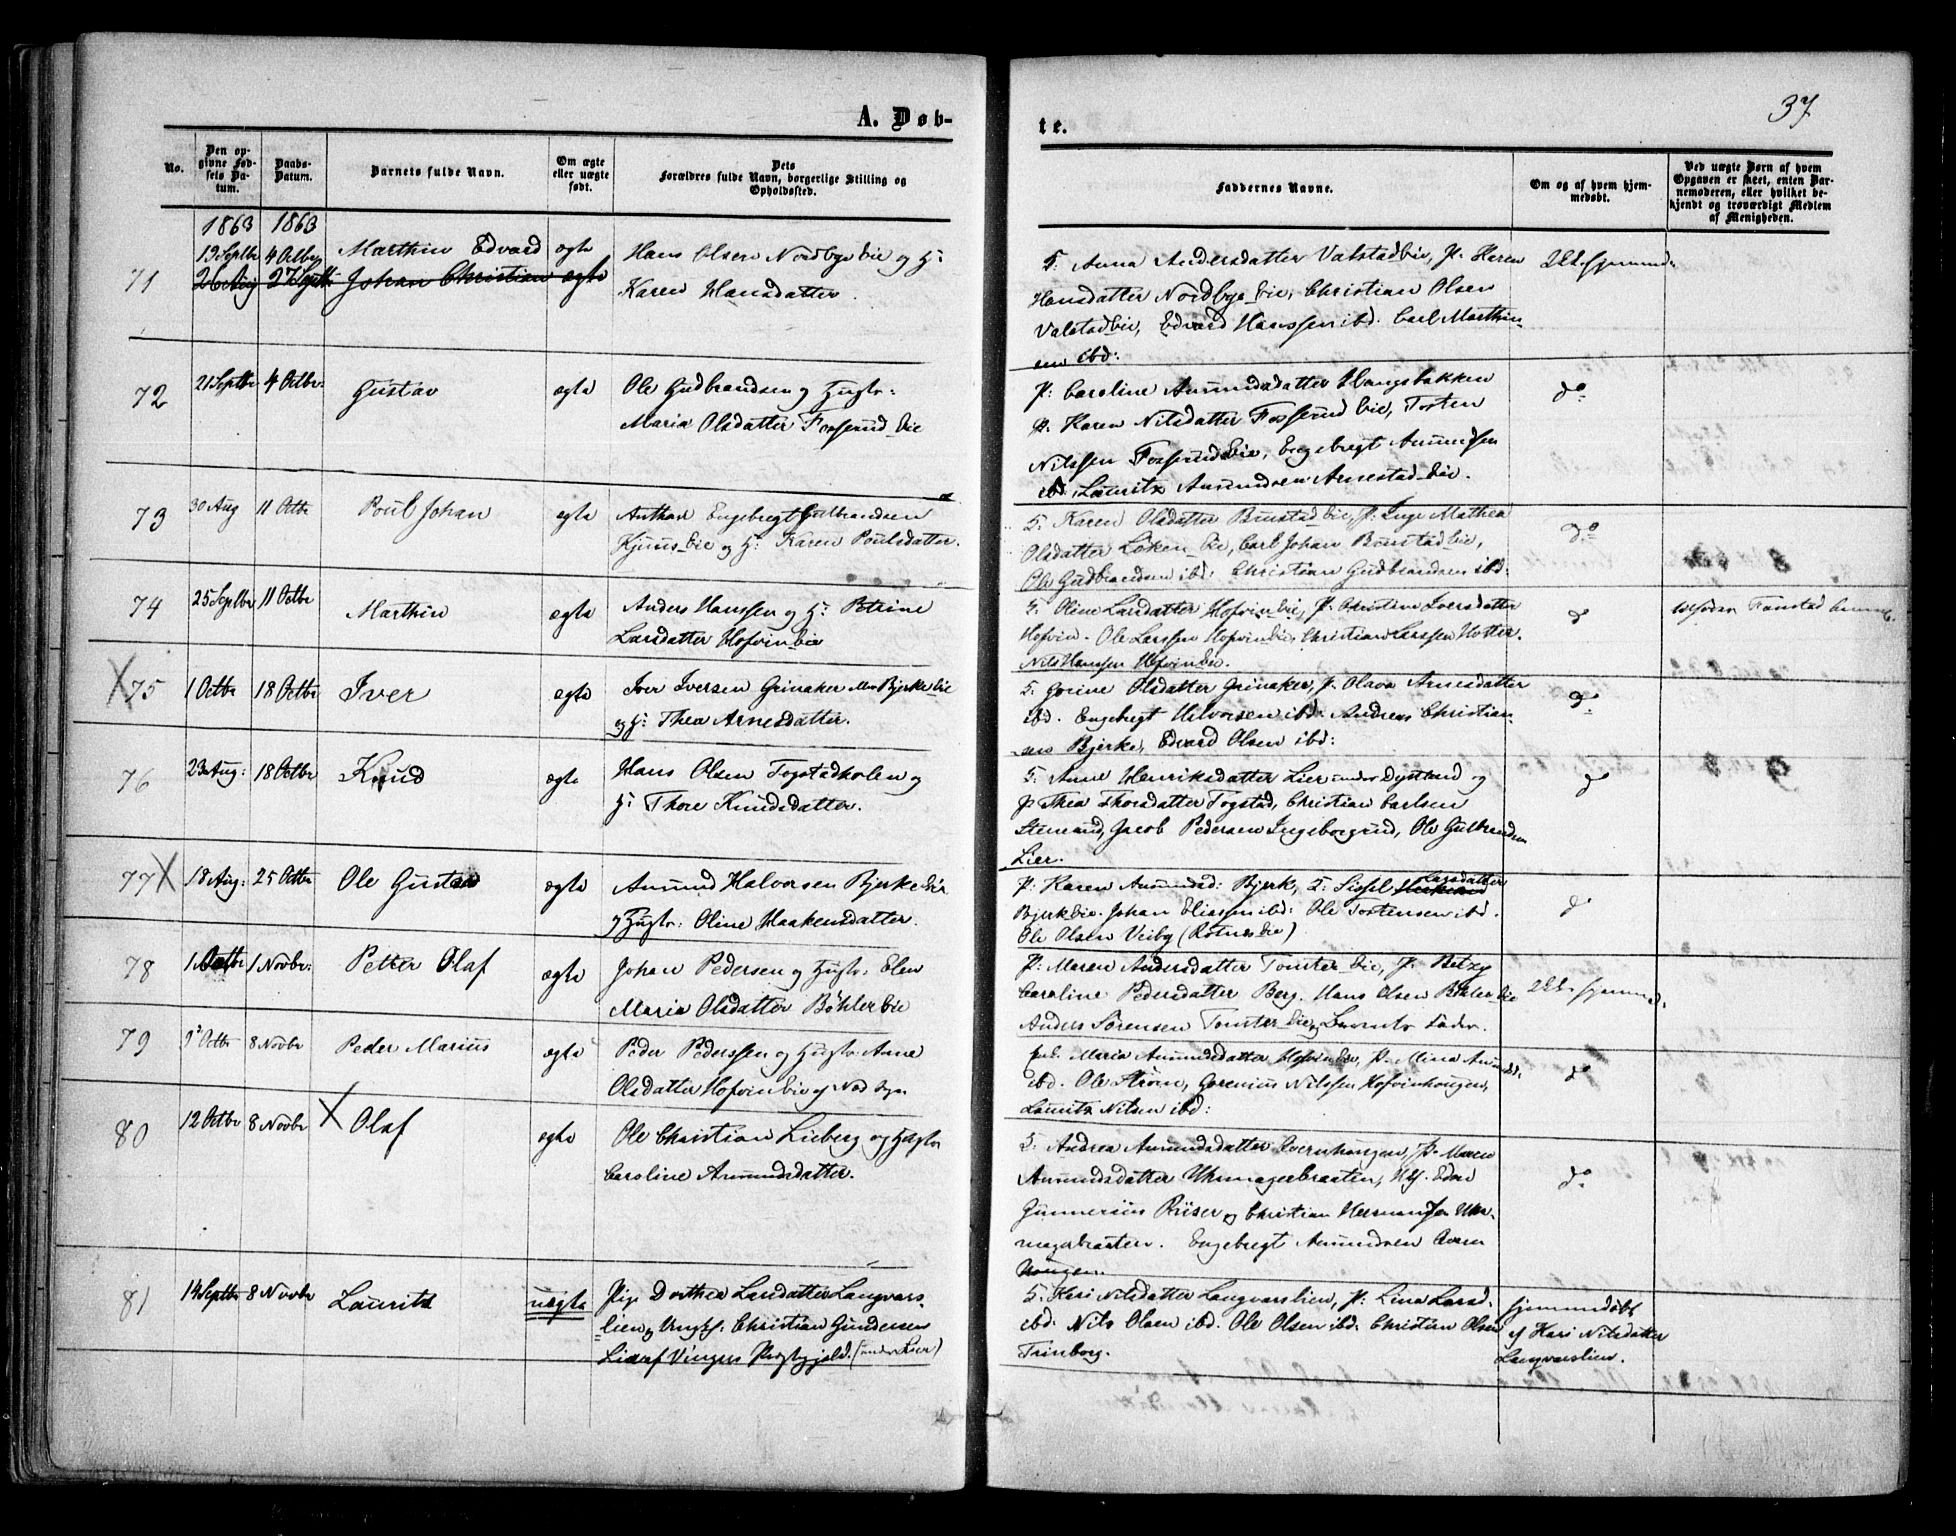 37
A. Døb-
te.
No.
Den opgivne Fødsels Datum.
Daabs-Datum.
Barnets fulde Navn.
Om ægte eller uægte født.
Dets Forældres fulde Navn, borgerlige Stilling og Opholdssted.
Faddernes Navne.
Om og af hvem hjemmedøbt.
Ved uægte Børn af hvem Opgaven er skeet, enten Barnemoderen, eller hvilket bekjendt og troværdigt Medlem af Menigheden.
1863 1863
13 Septbr 4 Octbr Marthin Edvard ægte Hans Olsen Nordbye eie og H:
71 26 Aug 27 Septbr Johan Christian ægte
Karen Hansdatter.
G: Anna Andersdatter Valstadeie, P: Karen
Hansdatter Nordbye eie, Christian Olsen
Valstadeie, Edvard Hanssen ibd. Carl Marthin-
sen ibd:
72 21 Septbr 4 Octbr: Gustav ægte Ole Gudbrandsen og Hustr:
Maria Olsdatter Fosserud eie
P: Caroline Amundsdatter Haugsbakken
P: Karen Nilsdatter Fosserud eie, Tosten
Nilssen Fosserudeie, Engebregt Amundsen
ibd, Lauritz Amundsen Arnestad eie.
do
73 30 Aug 11 Octbr Poul Johan ægte Engebregt Gulbrandsen
Kjuus eie og H: Karen Poulsdatter.
G: Karen Olsdatter Buustad eie, P: Inge Mathea
Olsdatter Løken eie, Carl Johan Buustadeie,
Ole Gudbrandsen ibd: Christian Gudbrandsen ibd:
do
74 25 Septbr 11 Octbr Marthin ægte Anders Hanssen og H: Petrine
Larsdatter Hofvineie
G: Oline Larsdatter Hofvineie, P: Christine Iversdatter
Hofvin. Ole Larssen Hofvineie, Christian Larssen Hotter.
Nils Hansen Hofvineie.
do
75 1 Octbr 18 Octbr Iver ægte Iver Iversen Grinaker Bjerke eie
og H: Thea Arnesdatter.
G: Gorine Olsdatter Grinaker, P: Olava Arnesdatter
ibd. Engebregt Halvorsen ibd. Andreas Christian-
sen Bjerke, Edvard Olsen ibd:
do
76 23 Aug: 18 Octbr Knud ægte Hans Olsen Togstadholen og
H: Thore Knudsdatter.
G: Anne Henriksdatter Lier under Dystland og
P: Thea Thorsdatter Togstad, Christian Carlsen
Stenrud, Jacob Pedersen Ingeborgrud, Ole Gulbrandsen
Lier.
do
77 X 18 Aug: 25 Octbr Ole Gustav ægte Amund Halvorsen Bjerke eie
og Hustr: Oline Haakensdatter.
P: Karen Amundsd: Bjerk, G: Sissel Larsdatter
Bjerkeie. Johan Eliassen ibd: Ole Tostensen ibd.
Ole Olsen Veiby (Rotnes eie)
do
78 1 Octbr 1 Novbr: Petter Olaf ægte Johan Pedersen og Hustr: Elen
Maria Olsdatter Bøhlereie
P: Maren Andersdatter Tomter eie, P: Betzy
Caroline Pedersdatter Berg. Hans Olsen Bøhler eie
Anders Sørensen Tomter eie og Barnets Fader.
79 Octbr 8 Novbr Peder Marius ægte Peder Pederssen og Hustr: Anne
Olsdatter Hofvineie
Maria Amundsdatter Hofvineie, P: Mina
ibd. Ole Strøm, Gorenius Nilssen Hofvinhougen,
Lauritz Nilsen ibd:
do
80 12 Octbr 8 Novbr X Olaf ægte Ole Christian Lieberg og Hustr
Caroline Amundsdatter.
G: Andrea Amundsdatter Qvernhougen, P: Maren
Amundsdatter Uhrmagerbraaten,
Gunnersen Riiser og Christian Hermansen Uhr-
magerbraaten. Engebregt Amundsen Qvern
hougen.
do
81 14 Septbr 8 Novbr Lauritz uægte Pige Dorthea Larsdatter Langvars-
lien og Ungk: Christian Gundersen
Lie af Vingers Prestegjeld. (under Lier)
G: Kari Nilsdatter Langvarslien, P: Lina Larsd.
ibd. Nils Olsen ibd. Ole Olsen ibd. Christian Olsen
Trinborg.
hjemmedøbt
af Kari Nilsdatter
Langvarslien.